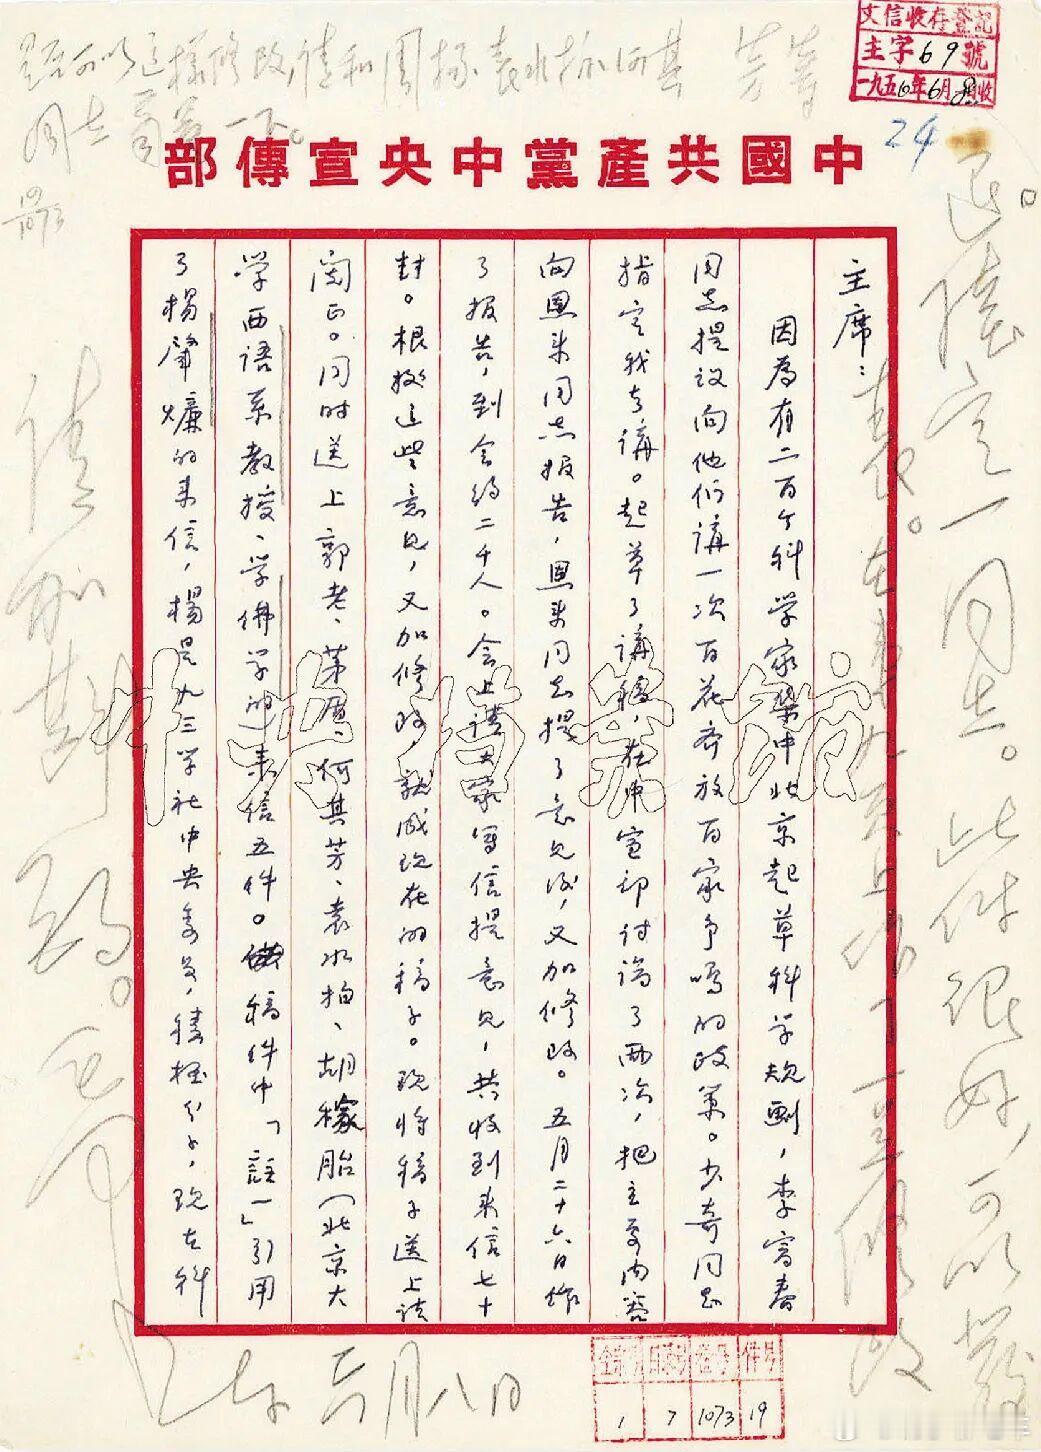 文信收存登記
主字69號
一九五六年6月8日收
24
是否可以这样修改,请和周扬、袁水拍、何其芳等
同志商量一下。
中國共產黨中央宣傳部
退陆定一同志。此件很好,可以发
表。在第九页上作了一点修改
请加斟酌。毛泽东
六月八日
主席:
因為有二百个科学家集中北京起草科学规劃,李富春
同志提议向他们講一次百花齐放百家争鸣的政策。少奇同志
指定我去講。起草了講稿,在中宣部讨論了两次,把主要内容
向恩来同志报告,恩来同志提了意见后,又加修改。五月二十六日作
了报告,到会约二千人。会上请大家写信提意见,共收到来信七十
封。根据这些意见,又加修改,就成现在的稿子。现将稿子送上请
阅正。同时送上郭老、茅盾、何其芳、袁水拍、胡稼胎(北京大
学西语系教授、学佛学的)来信五件。稿件中「註一」引用
了楊肇燫的来信,楊是九三学社中央委员,積極分子,现在科
全宗号 目录号 卷号 件号
1 7 1073 19